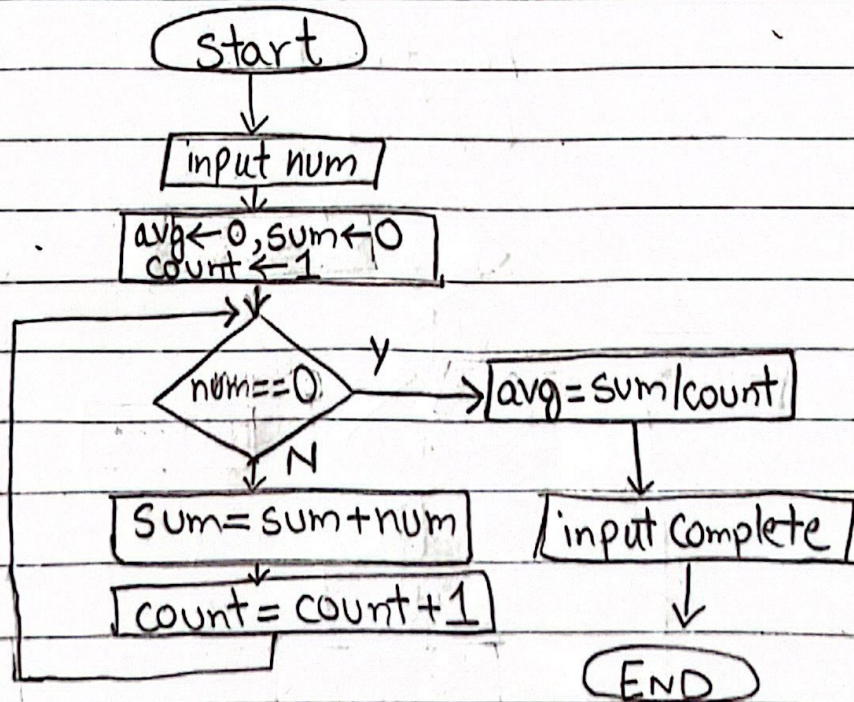 Start
input num
avg←0, sum←0
count ← 1
num==0
Y
avg=sum/count
N
sum=sum+num
input complete
count = count+1
END